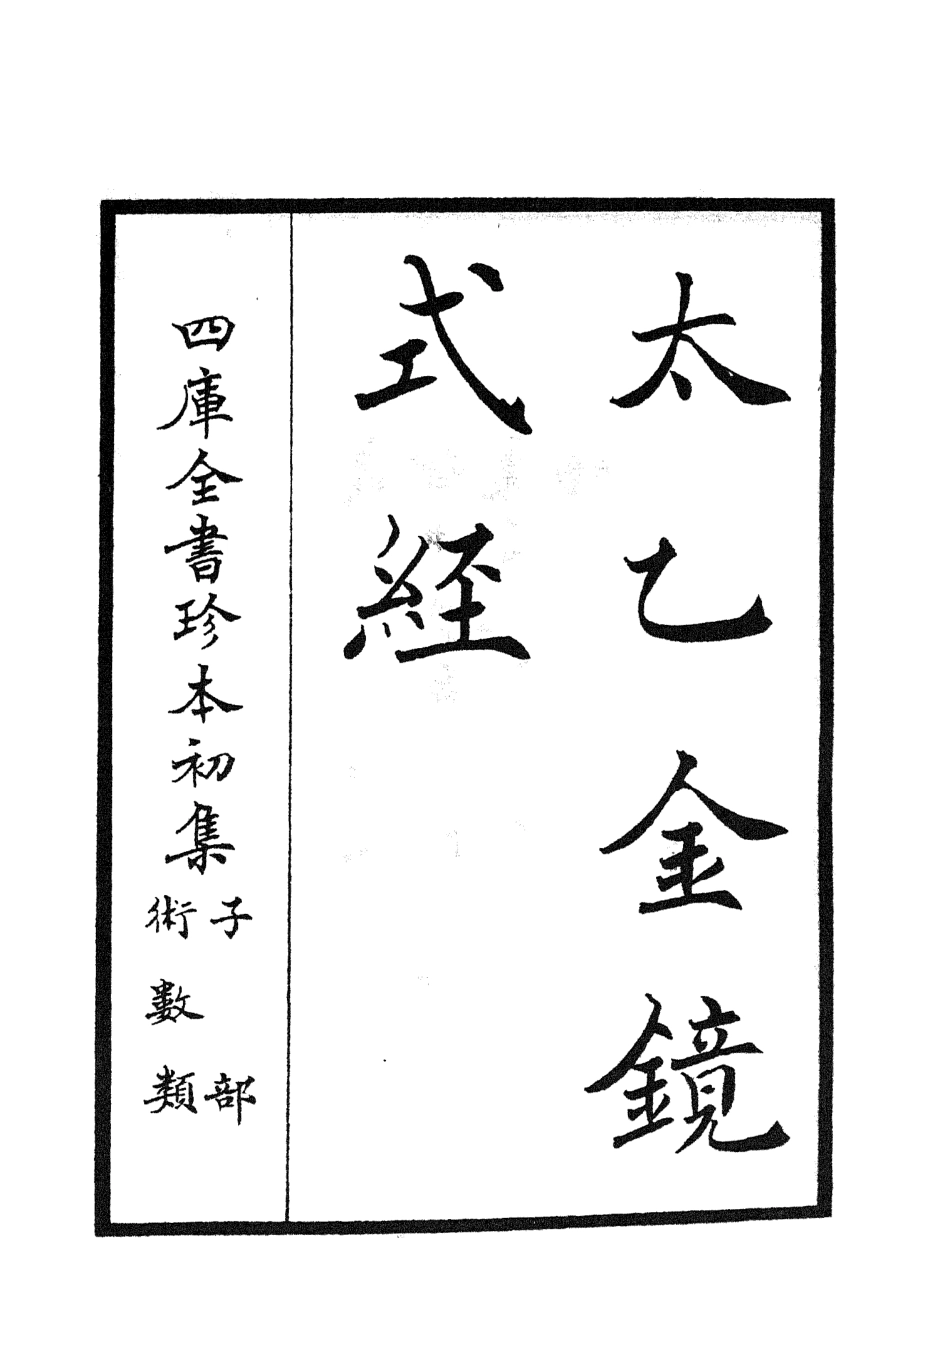 太乙金鏡
式經
四庫全書珍本初集
子部
術數類